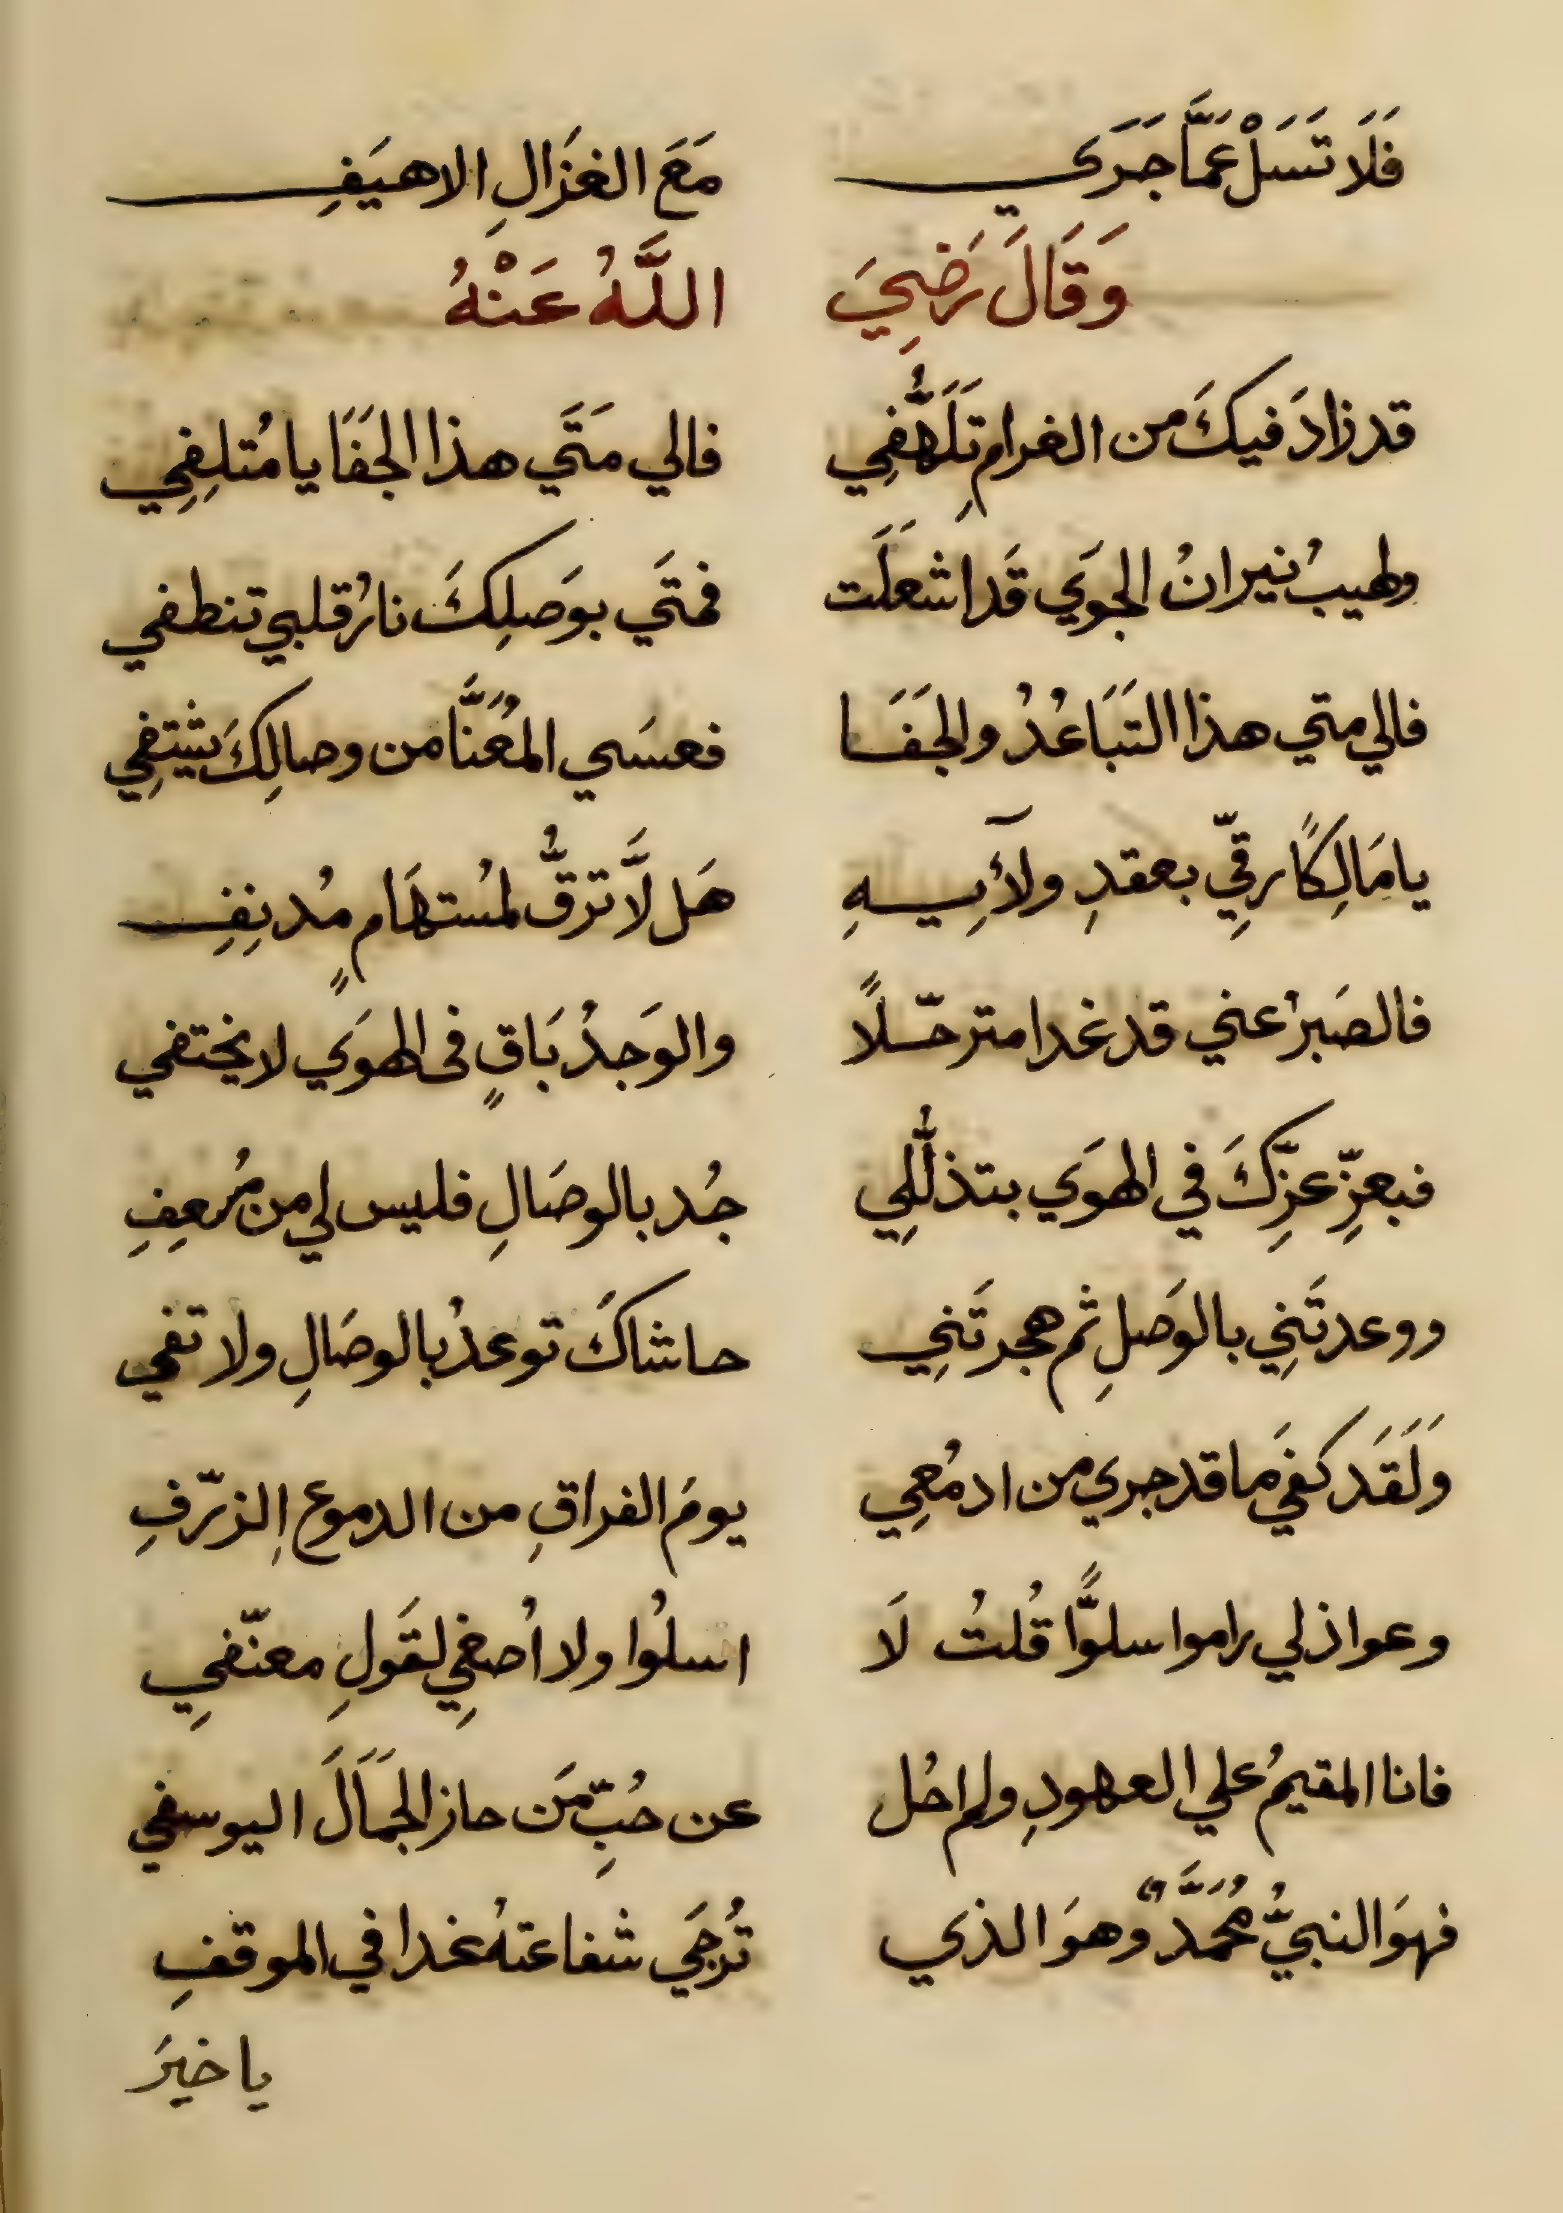 فَلَا تَسَلْ عَمَّا جَرَي مَعَ الغَزَالِ الاهيَفِ
وَقَالَ رَضِيَ اللَّهُ عَنْهُ
قد زادَ فيكَ من الغرامِ تَلَهُّفِي فالي مَتَي هذا الجَفَا يا مُتلِفِي
ولهيبُ نيرانُ الجوَي قَد اشعَلَت فمتَي بوَصلِكَ نارُ قلبي تنطفي
فالي متي هذا التَبَاعُدُ والجَفَا فعسَي المُعَنَّا من وصالِكَ يشتِفِي
يا مَالِكًا رقِّي بعقدِ ولآئِيهِ هَل لَّا ترقُّ لمُستهَامٍ مُدنِفِ
فالصَبرُ عني قد غدا مترحّلًا والوَجدُ بَاقٍ فى الهوَي لا يختفي
فبعزِّ عزِّكَ في الهوَي بتذلُّلِي جُد بالوصَالِ فليس لي من مُرعِفِ
ووعدتَنِي بالوَصلِ ثم هجرتَنِي حاشاكَ توعدُ بالوصَالِ ولا تفي
وَلَقَد كفَي ما قد جري من ادمُعِي يومَ الفراقِ من الدموعِ الزرّفِ
وعواذلي راموا سلوًّا قُلتُ لَا اسلُوا ولا اُصغِي لقَولِ معنّفِي
فانا المقيمُ علي العهودِ ولم احُل عن حُبِّ مَن حاز الجَمَالَ اليوسفي
فهوَ النبيُّ مُحَمَّدٌ وهوَ الذي تُرجَي شفاعتهُ غدا في الموقفِ
يا خيرَ